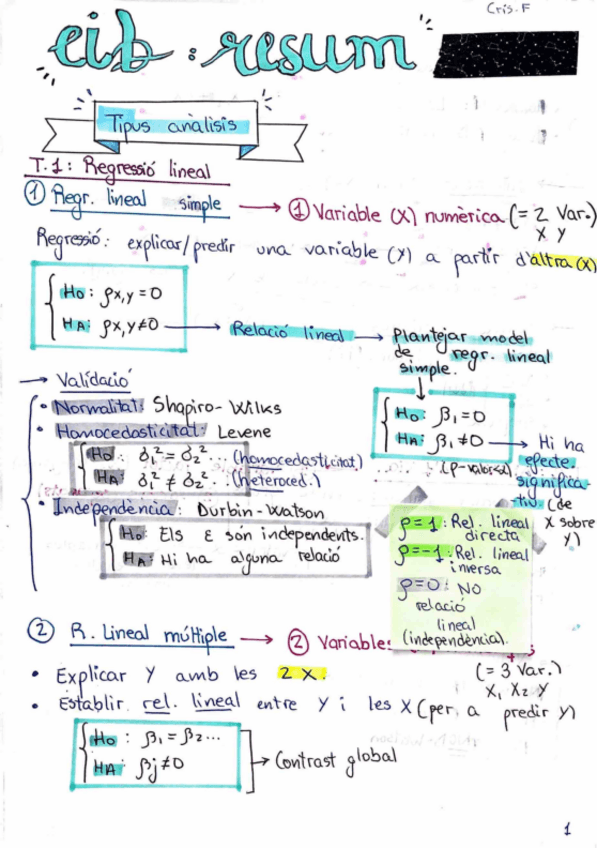 Cris. F
eib : resum
Tipus anàlisis
T.1: Regressió lineal
① Regr. lineal simple → ① Variable (X) numèrica (= 2 Var.)
X Y
Regressió: explicar/predir una variable (Y) a partir d'altra (X)
H0: ρx,y = 0
HA: ρx,y ≠ 0 → Relació lineal → Plantejar model
de regr. lineal
simple.
→ Validació
• Normalitat: Shapiro-Wilks
• Homocedasticitat: Levene
H0: δ1² = δ2² ... (homocedasticitat)
HA: δ1² ≠ δ2² ... (heteroced.)
H0: β1 = 0
HA: β1 ≠ 0 → Hi ha
efecte
significa-
tiu (de
X sobre
Y)
(p-valors)
• Independència: Durbin-Watson
H0: Els ε són independents.
HA: Hi ha alguna relació
ρ=1: Rel. lineal
directa
ρ=-1: Rel. lineal
inversa
ρ=0: NO
relació
lineal
(independència).
② R. Lineal múltiple → ② Variables
(= 3 Var.)
X1 X2 Y
• Explicar Y amb les 2 X.
• Establir rel. lineal entre Y i les X (per a predir Y)
H0: β1 = β2...
HA: βj ≠ 0
→ Contrast global
1